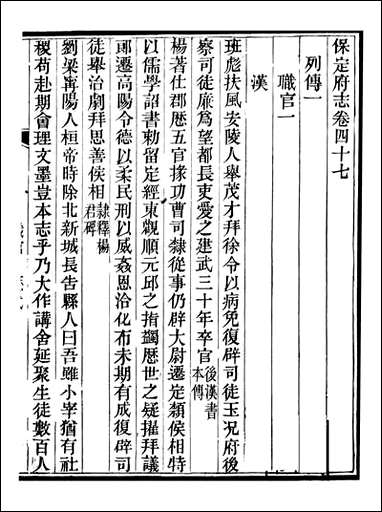 保定府志卷四十七
列傳一
職官一
漢
班彪扶風安陵人舉茂才拜徐令以病免復辟司徒玉況府後
察司徒廉爲望都長吏愛之建武三十年卒官後漢書本傳
楊著仕郡歷五官掾功曹司隸從事仍辟大尉遷定潁侯相特
以儒學詔書勅留定經東觀順元丘之指蠲歷世之疑擢拜議
郎遷高陽令德以柔民刑以威姦恩洽化布未期有成復辟司
徒舉治劇拜思善侯相隸釋楊君碑
劉梁寗陽人桓帝時除北新城長告縣人曰吾雖小宰猶有社
稷苟赴期會理文墨豈本志乎乃大作講舍延聚生徒數百人